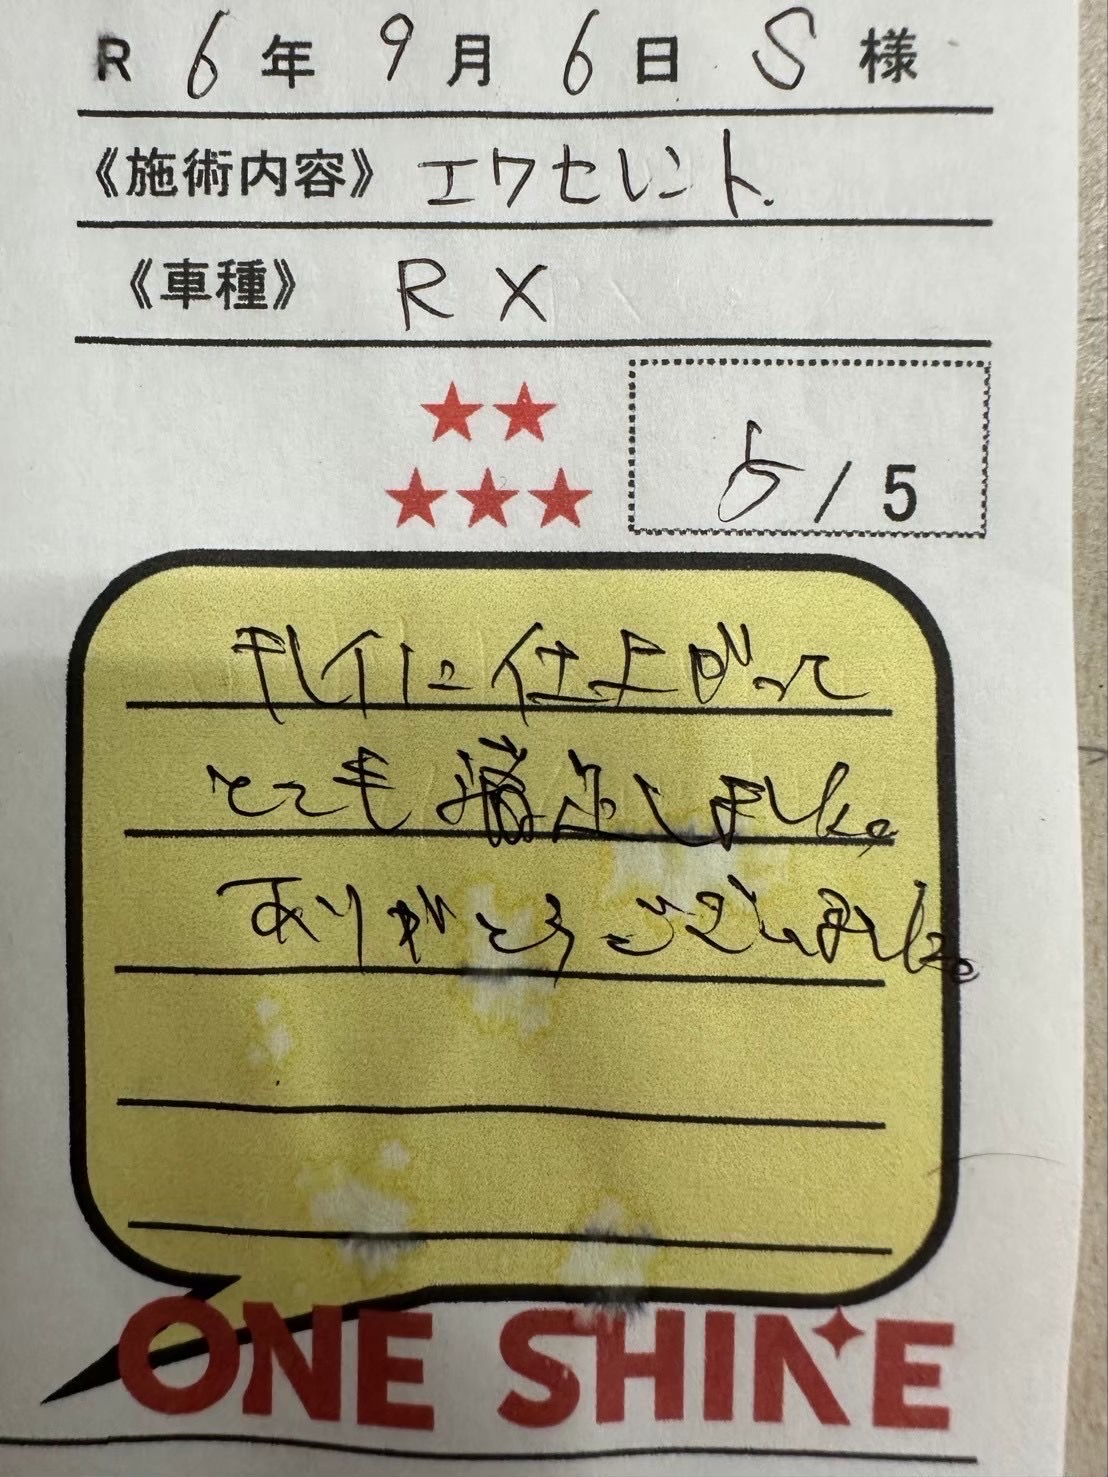 R 6年 9月 6日 S様
《施術内容》 エクセレント.
《車種》 RX
5/5
キレイに仕上がって
とても満足しました。
ありがとうございました。
ONE SHINE